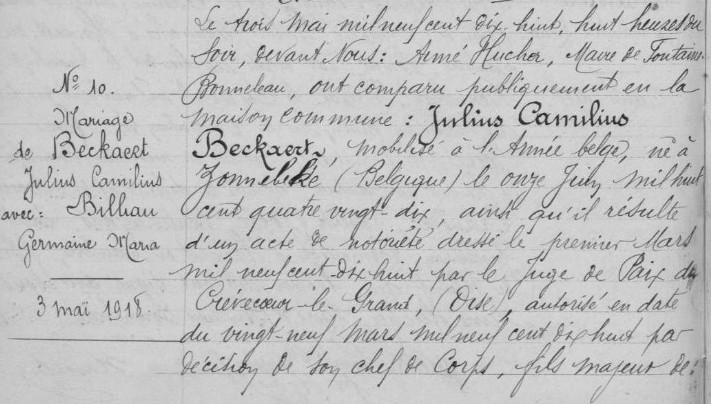 Le trois Mai mil neuf cent dix-huit, huit heures du
Soir, devant Nous: Aimé Hucher, Maire de Fontaine
Bonneleau, ont comparu publiquement en la
maison commune : Julius Camilius
Beckaert, mobilisé à l'Armée belge, né à
Zonnebeke (Belgique) le onze Juin mil huit
cent quatre vingt-dix, ainsi qu'il résulte
d'un acte de notoriété dressé le premier Mars
mil neuf cent dix huit par le Juge de Paix de
Crèvecoeur-le-Grand, (Oise), autorisé en date
du vingt-neuf Mars mil neuf cent dix huit par
décision de son chef de Corps, fils majeur de:
No 10.
Mariage
de Beckaert
Julius Camilius
avec: Billiau
Germaine Maria
3 maï 1918.